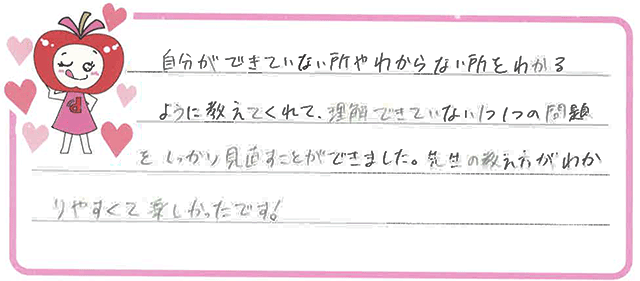 自分ができていない所やわからない所をわかる
ように教えてくれて、理解できていない1つ1つの問題
をしっかり見直すことができました。先生の教え方がわか
りやすくて楽しかったです!